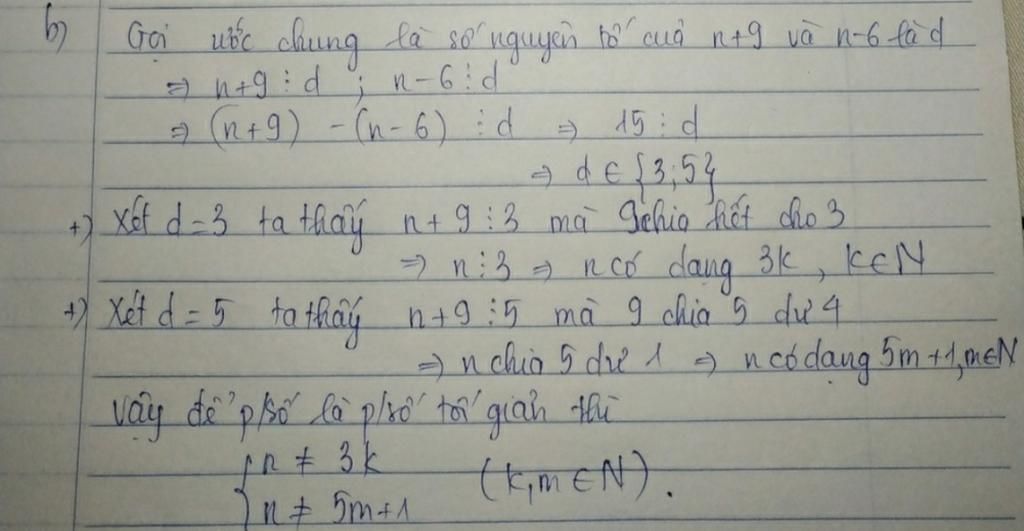 b) Gọi ước chung là số nguyên tố của n+9 và n-6 là d
⇒ n+9 ⋮ d ; n-6 ⋮ d
⇒ (n+9) - (n-6) ⋮ d ⇒ 15 ⋮ d
⇒ d ∈ {3;5}
+) Xét d=3 ta thấy n+9 ⋮ 3 mà 9 chia hết cho 3
⇒ n ⋮ 3 ⇒ n có dạng 3k, k∈N
+) Xét d=5 ta thấy n+9 ⋮ 5 mà 9 chia 5 dư 4
⇒ n chia 5 dư 1 ⇒ n có dạng 5m+1, m∈N
Vậy để p/số là p/số tối giản thì
{ n ≠ 3k
n ≠ 5m+1 (k,m ∈ N).